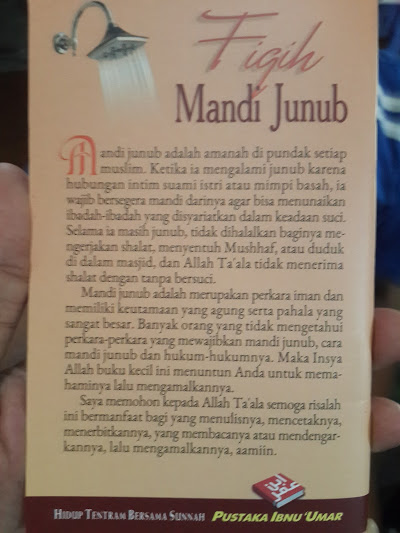 Fiqih
Mandi Junub
Mandi junub adalah amanah di pundak setiap
muslim. Ketika ia mengalami junub karena
hubungan intim suami istri atau mimpi basah, ia
wajib bersegera mandi darinya agar bisa menunaikan
ibadah-ibadah yang disyariatkan dalam keadaan suci.
Selama ia masih junub, tidak dihalalkan baginya me-
ngerjakan shalat, menyentuh Mushhaf, atau duduk
di dalam masjid, dan Allah Ta'ala tidak menerima
shalat dengan tanpa bersuci.
Mandi junub adalah merupakan perkara iman dan
memiliki keutamaan yang agung serta pahala yang
sangat besar. Banyak orang yang tidak mengetahui
perkara-perkara yang mewajibkan mandi junub, cara
mandi junub dan hukum-hukumnya. Maka Insya
Allah buku kecil ini menuntun Anda untuk mema-
haminya lalu mengamalkannya.
Saya memohon kepada Allah Ta'ala semoga risalah
ini bermanfaat bagi yang menulisnya, mencetaknya,
menerbitkannya, yang membacanya atau mendengar-
kannya, lalu mengamalkannya, aamiin.
HIDUP TENTRAM BERSAMA SUNNAH PUSTAKA IBNU 'UMAR